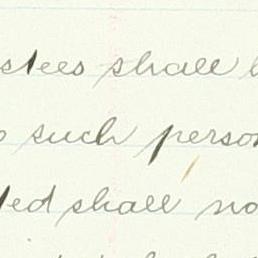 stees shall
such person
ted shall no